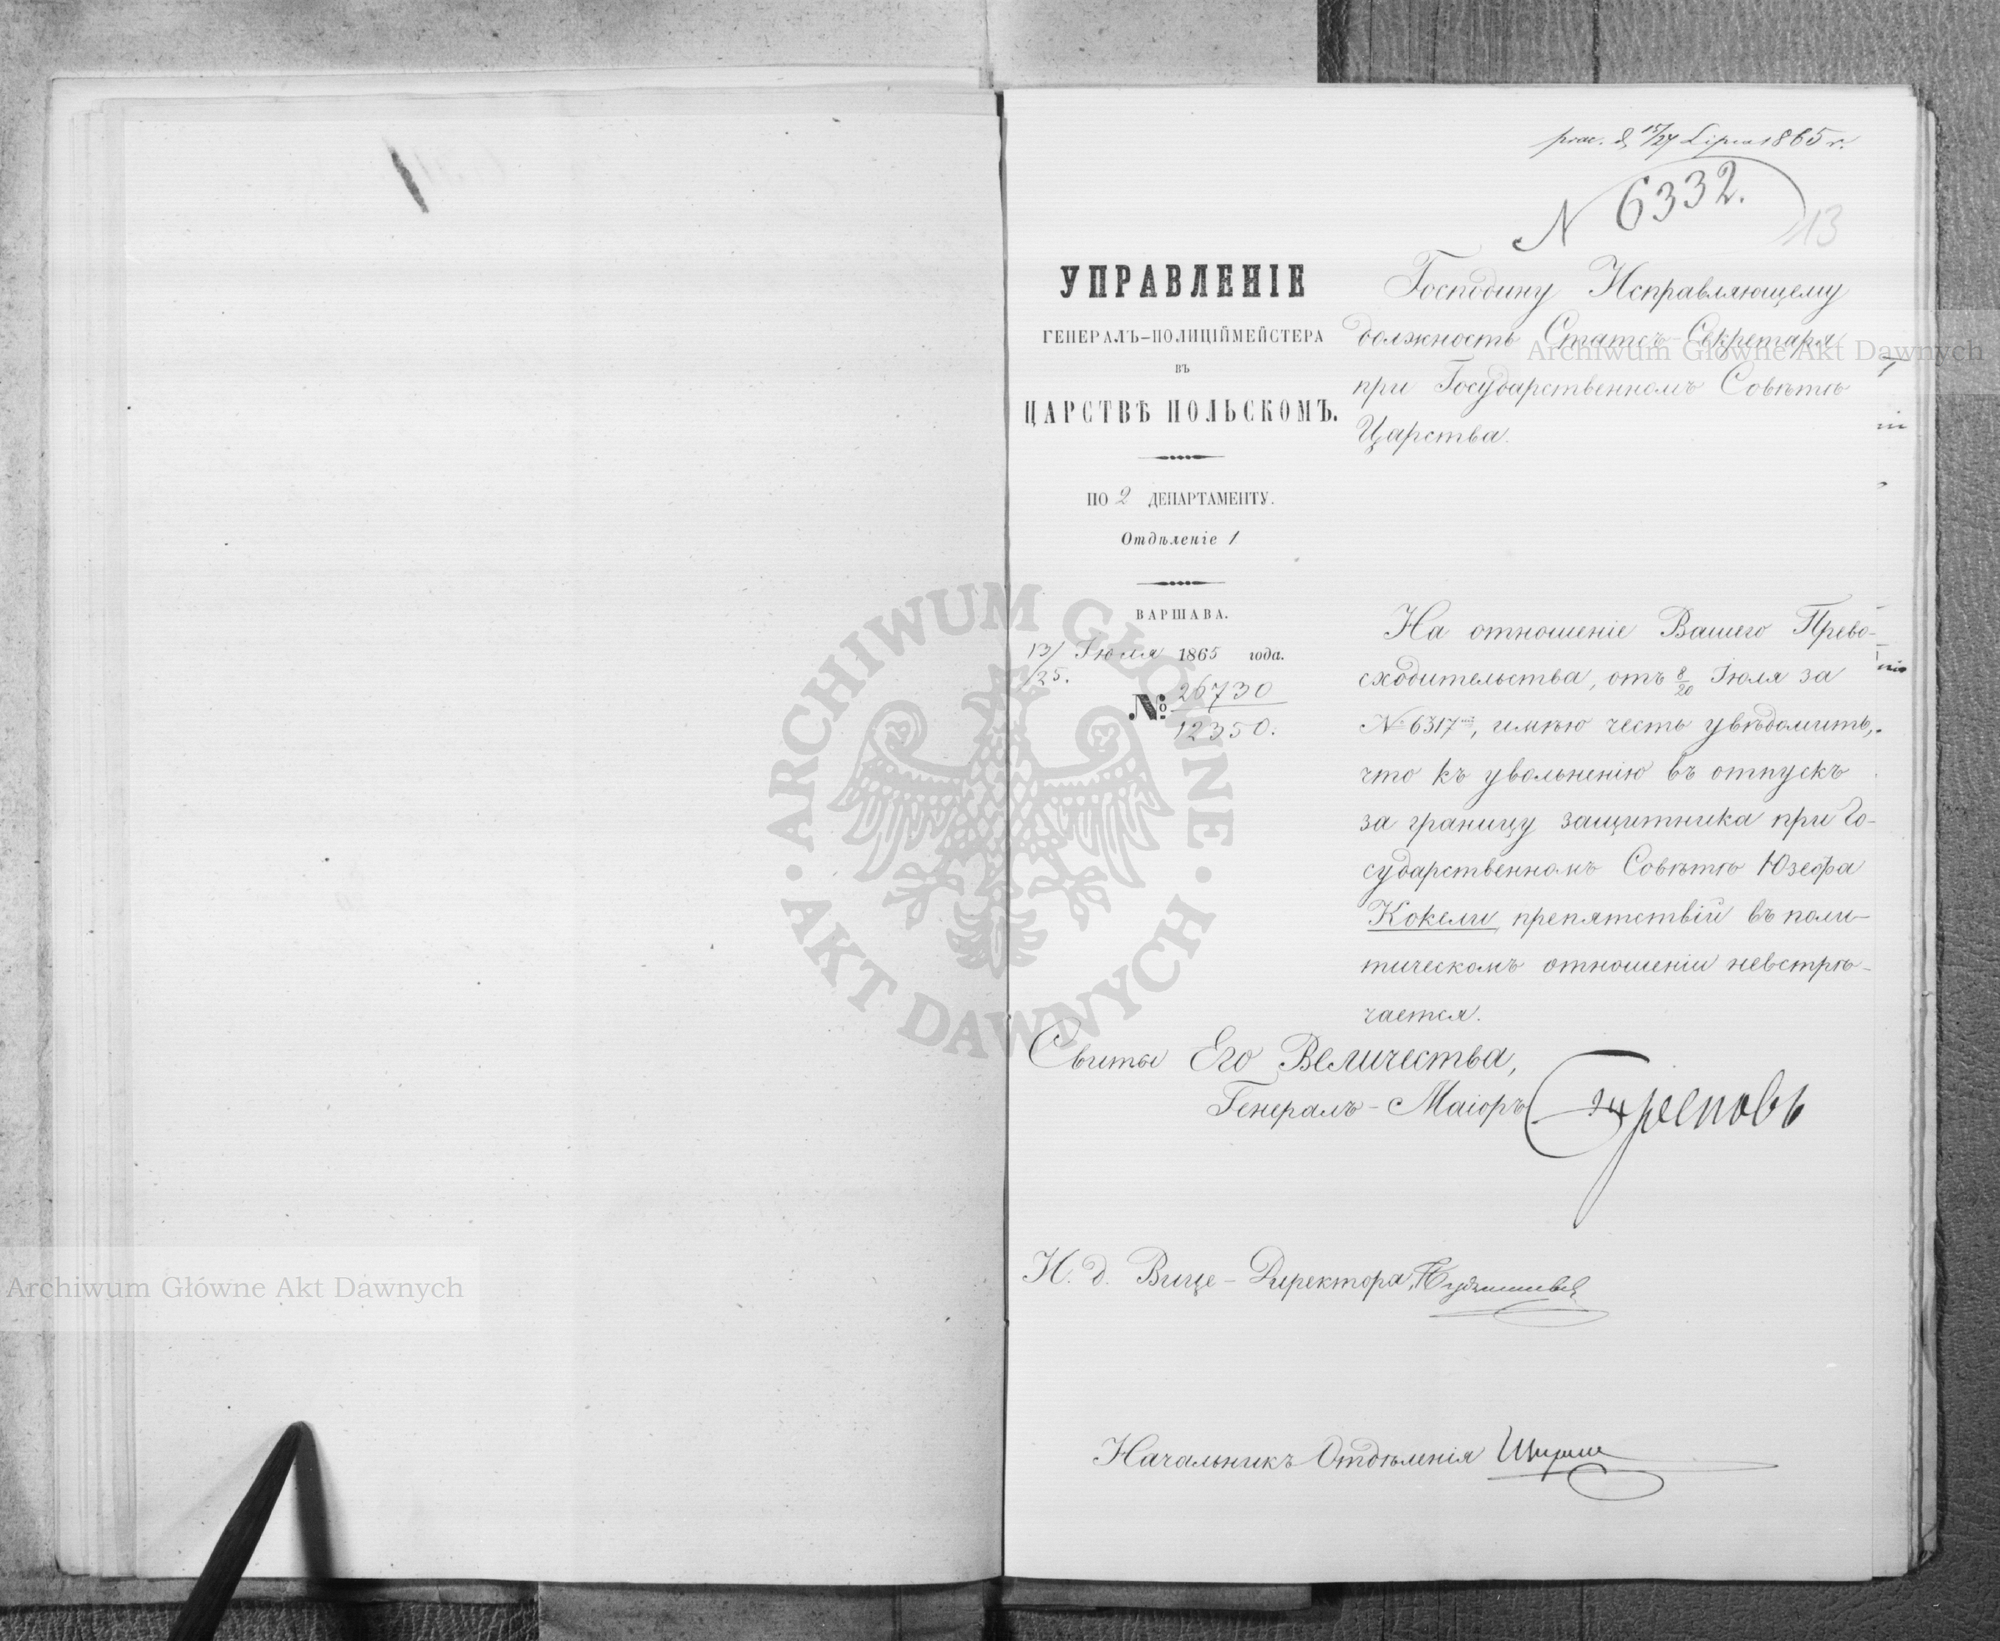 prae. d. 15/27 Lipca 1865 r.
N 6332.
13
УПРАВЛЕНІЕ
ГЕНЕРАЛЪ-ПОЛИЦІЙМЕЙСТЕРА
ВЪ
ЦАРСТВѢ ПОЛЬСКОМЪ.
ПО 2 ДЕПАРТАМЕНТУ.
Отдѣленіе 1
ВАРШАВА.
13/25. Іюля 1865 года.
№ 26730
12350.
Господину Исправляющему
должность Статсъ-Секретаря
при Государственномъ Совѣтѣ
Царства.
На отношеніе Вашего Прево-
сходительства, отъ 8/20 Іюля за
№ 6317, имѣю честь увѣдомить,
что къ увольненію въ отпускъ
за границу защитника при Го-
сударственномъ Совѣтѣ Юзефа
Кокели, препятствій въ поли-
тическомъ отношеніи невстрѣ-
чается.
Свиты Его Величества,
Генералъ-Маіоръ Треповъ
И. д. Вице-Директора
Начальникъ Отдѣленія
Archiwum Główne Akt Dawnych
Archiwum Główne Akt Dawnych
ARCHIWUM GŁÓWNE AKT DAWNYCH